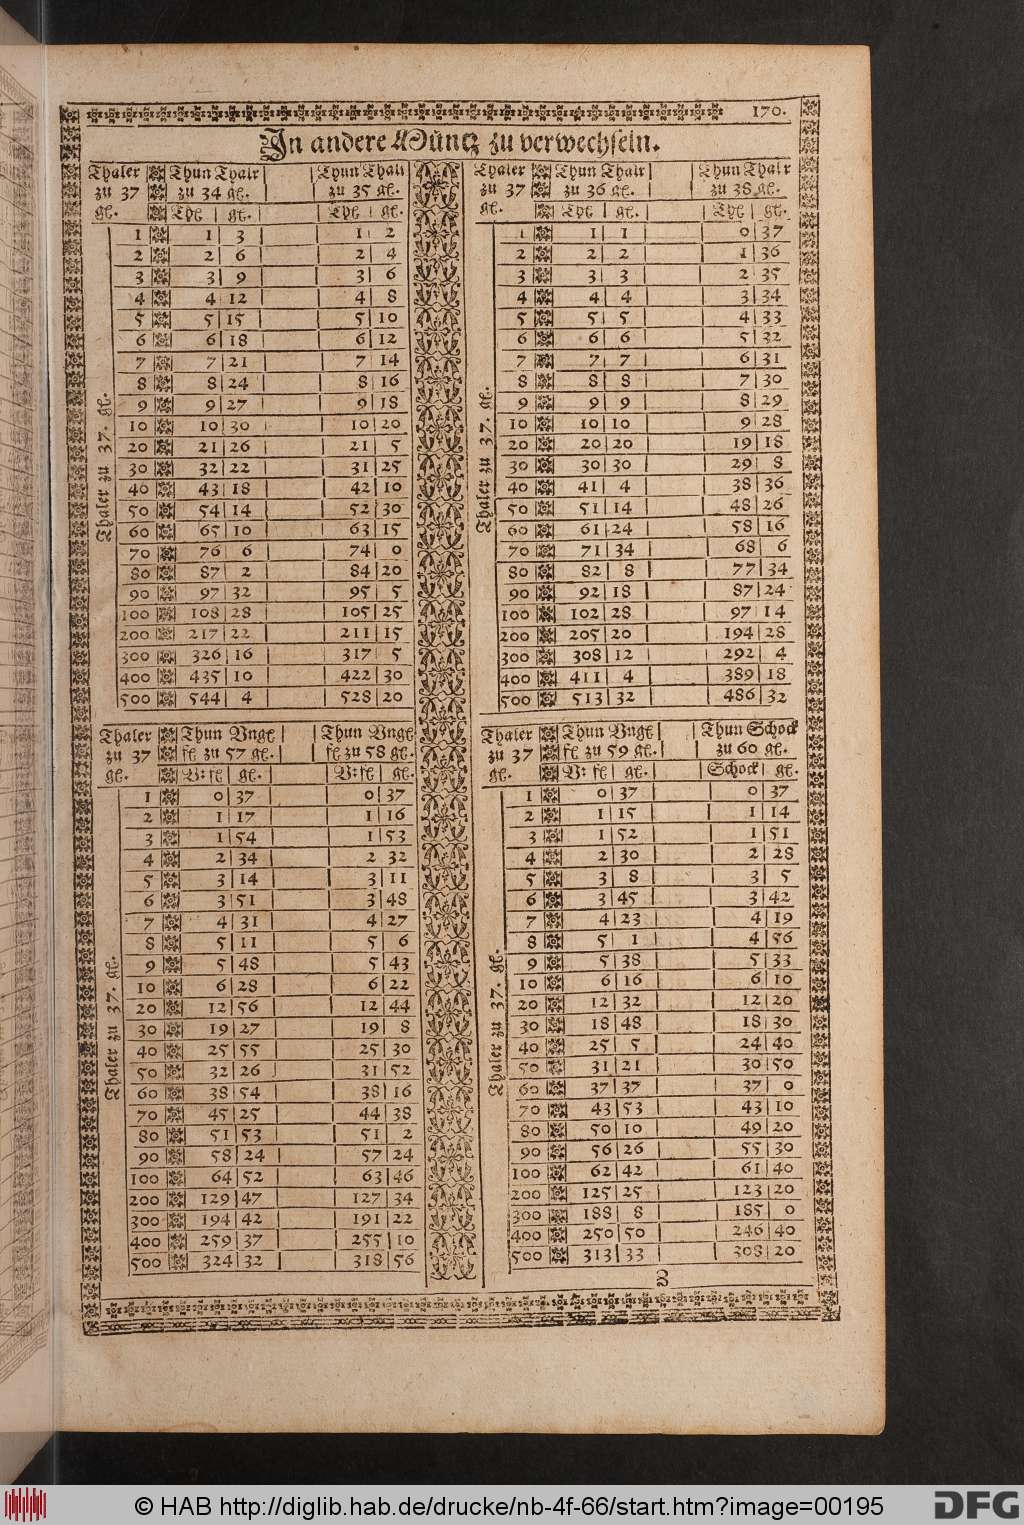 170.
In andere Müntz zu verwechseln.
Thaler Thun Thalr Thun Thalr
zu 37 zu 34 gl. zu 35 gl.
gl. Thl gl. Thl gl.
Thaler zu 37. gl.
1 1 3 1 2
2 2 6 2 4
3 3 9 3 6
4 4 12 4 8
5 5 15 5 10
6 6 18 6 12
7 7 21 7 14
8 8 24 8 16
9 9 27 9 18
10 10 30 10 20
20 21 26 21 5
30 32 22 31 25
40 43 18 42 10
50 54 14 52 30
60 65 10 63 15
70 76 6 74 0
80 87 2 84 20
90 97 32 95 5
100 108 28 105 25
200 217 22 211 15
300 326 16 317 5
400 435 10 422 30
500 544 4 528 20
Thaler Thun Thalr Thun Thalr
zu 37 zu 36 gl. zu 38 gl.
gl. Thl gl. Thl gl.
Thaler zu 37. gl.
1 1 1 0 37
2 2 2 1 36
3 3 3 2 35
4 4 4 3 34
5 5 5 4 33
6 6 6 5 32
7 7 7 6 31
8 8 8 7 30
9 9 9 8 29
10 10 10 9 28
20 20 20 19 18
30 30 30 29 8
40 41 4 38 36
50 51 14 48 26
60 61 24 58 16
70 71 34 68 6
80 82 8 77 34
90 92 18 87 24
100 102 28 97 14
200 205 20 194 28
300 308 12 292 4
400 411 4 389 18
500 513 32 486 32
Thaler Thun Vngl Thun Vngl
zu 37 fl zu 57 gl. fl zu 58 gl.
gl. V: fl gl. V: fl gl.
Thaler zu 37. gl.
1 0 37 0 37
2 1 17 1 16
3 1 54 1 53
4 2 34 2 32
5 3 14 3 11
6 3 51 3 48
7 4 31 4 27
8 5 11 5 6
9 5 48 5 43
10 6 28 6 22
20 12 56 12 44
30 19 27 19 8
40 25 55 25 30
50 32 26 31 52
60 38 54 38 16
70 45 25 44 38
80 51 53 51 2
90 58 24 57 24
100 64 52 63 46
200 129 47 127 34
300 194 42 191 22
400 259 37 255 10
500 324 32 318 56
Thaler Thun Vngl Thun Schock
zu 37 fl zu 59 gl. zu 60 gl.
gl. V: fl gl. Schock gl.
Thaler zu 37. gl.
1 0 37 0 37
2 1 15 1 14
3 1 52 1 51
4 2 30 2 28
5 3 8 3 5
6 3 45 3 42
7 4 23 4 19
8 5 1 4 56
9 5 38 5 33
10 6 16 6 10
20 12 32 12 20
30 18 48 18 30
40 25 5 24 40
50 31 21 30 50
60 37 37 37 0
70 43 53 43 10
80 50 10 49 20
90 56 26 55 30
100 62 42 61 40
200 125 25 123 20
300 188 8 185 0
400 250 50 246 40
500 313 33 308 20
© HAB http://diglib.hab.de/drucke/nb-4f-66/start.htm?image=00195
DFG